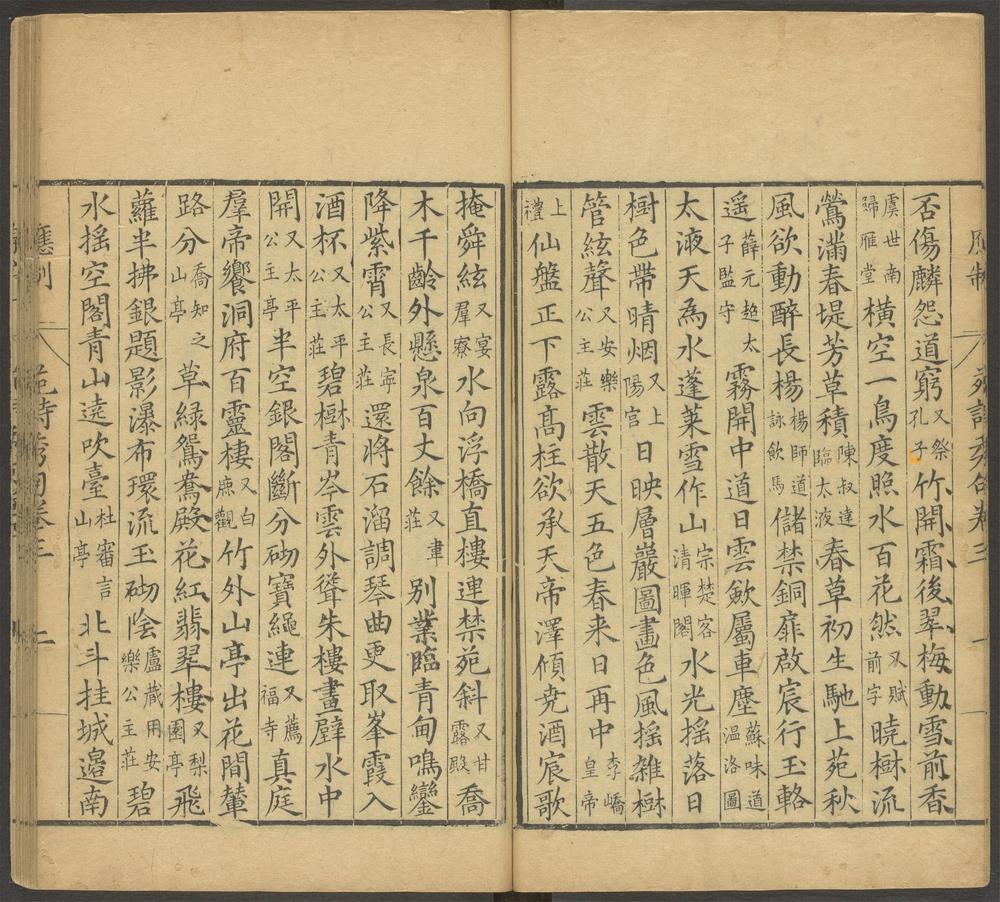 否傷麟怨道窮又祭孔子竹開霜後翠梅動雪前香
虞世南歸雁堂橫空一鳥度照水百花然又賦前字曉樹流
鶯滿春堤芳草積陳叔達臨太液春草初生馳上苑秋
風欲動醉長楊楊師道詠飲馬儲禁銅扉啟宸行玉輅
遥薛元超太子監守霧開中道日雲歛屬車塵蘇味道温洛圖
太液天為水蓬莱雪作山宗楚客清暉閣水光摇落日
樹色帶晴烟又上陽宮日映層巖圖畫色風摇雑樹
管絃聲又安樂公主莊雲散天五色春来日再中李嶠皇帝
上禮仙盤正下露髙柱欲承天帝澤傾尭酒宸歌
掩舜絃又宴羣寮水向浮橋直樓連禁苑斜又甘露殿喬
木千齡外懸泉百丈餘又韋莊別業臨青甸鳴鑾
降紫霄又長寜公主莊還將石溜調琴曲更取峯霞入
酒杯又太平公主莊碧樹青岑雲外聳朱樓畫壁水中
開又太平公主亭半空銀閣斷分砌寶繩連又薦福寺真庭
羣帝饗洞府百靈樓又白鹿觀竹外山亭出花間輦
路分喬知之山亭草緑鴛鴦殿花紅翡翠樓又梨園亭飛
蘿半拂銀題影瀑布環流玉砌陰盧蔵用安樂公主莊碧
水摇空閣青山遶吹臺杜審言山亭北斗挂城邉南
應制
二